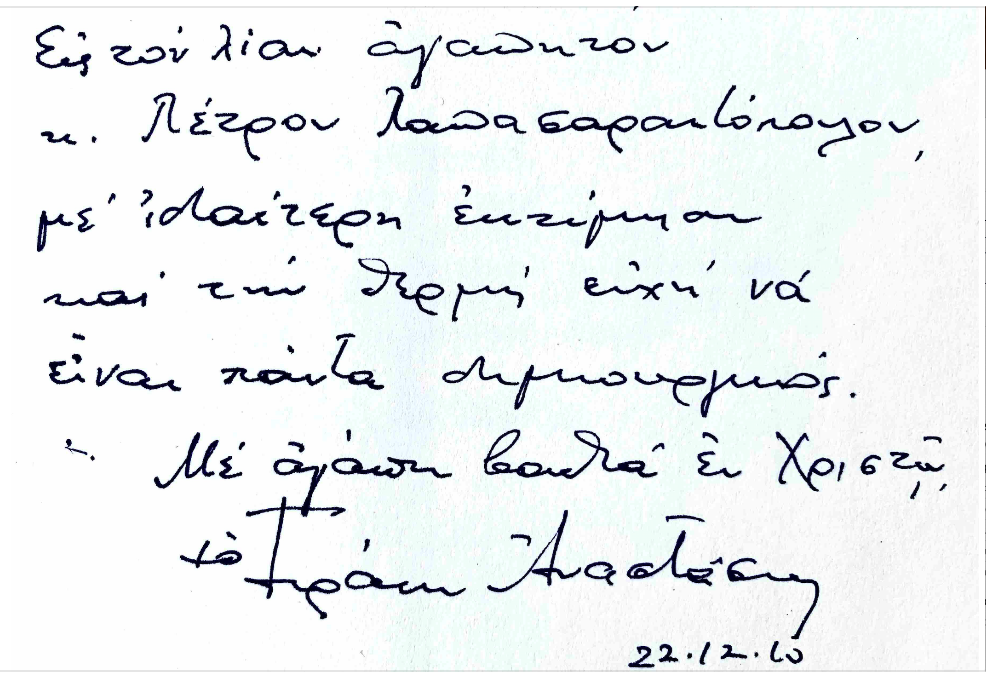 Εἰς τόν λίαν ἀγαπητόν
κ. Πέτρον Παπασαραντόπουλον,
μέ ἰδιαίτερη ἐκτίμηση
καί τήν θερμή εὐχή νά
εἶναι πάντα δημιουργικός.
Μέ ἀγάπη ἐν Χριστῷ,
Ἀναστάσιος
22.12.10